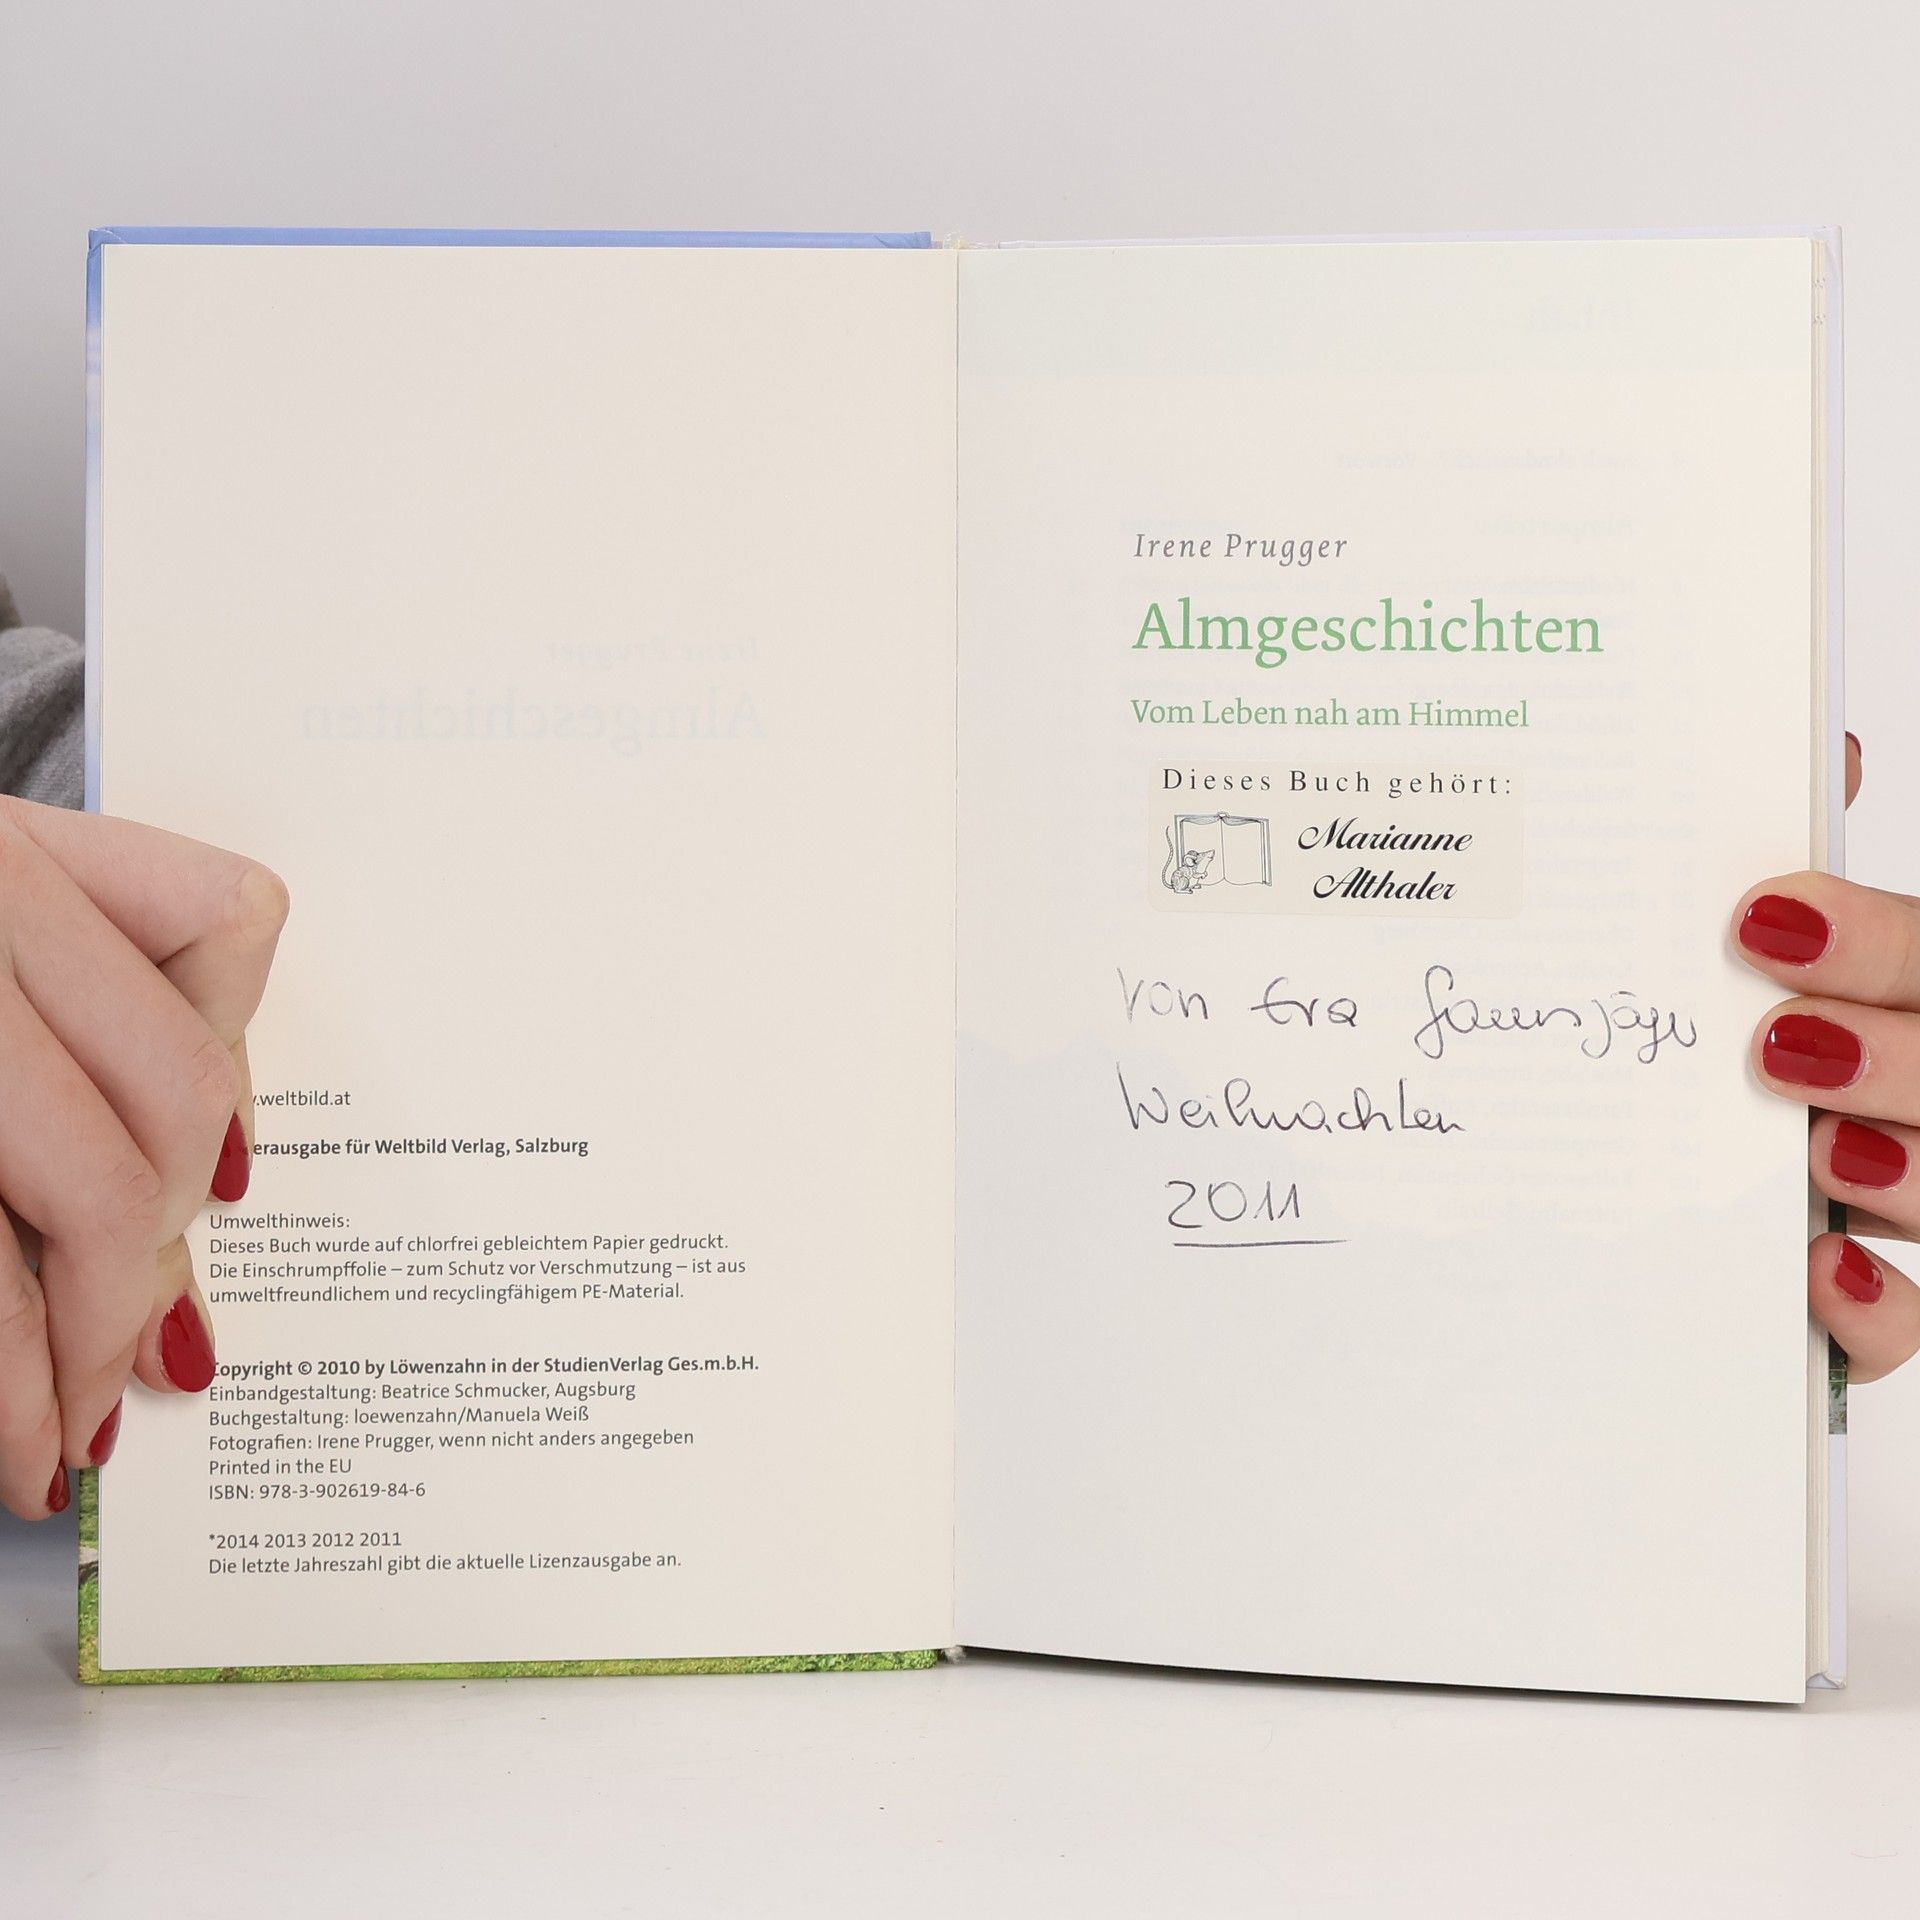 .weltbild.at
erausgabe für Weltbild Verlag, Salzburg
Umwelthinweis:
Dieses Buch wurde auf chlorfrei gebleichtem Papier gedruckt.
Die Einschrumpffolie – zum Schutz vor Verschmutzung – ist aus
umweltfreundlichem und recyclingfähigem PE-Material.
Copyright © 2010 by Löwenzahn in der StudienVerlag Ges.m.b.H.
Einbandgestaltung: Beatrice Schmucker, Augsburg
Buchgestaltung: loewenzahn/Manuela Weiß
Fotografien: Irene Prugger, wenn nicht anders angegeben
Printed in the EU
ISBN: 978-3-902619-84-6
*2014 2013 2012 2011
Die letzte Jahreszahl gibt die aktuelle Lizenzausgabe an.
Irene Prugger
Almgeschichten
Vom Leben nah am Himmel
Dieses Buch gehört:
Marianne
Althaler
von Eva
Weihnachten
2011